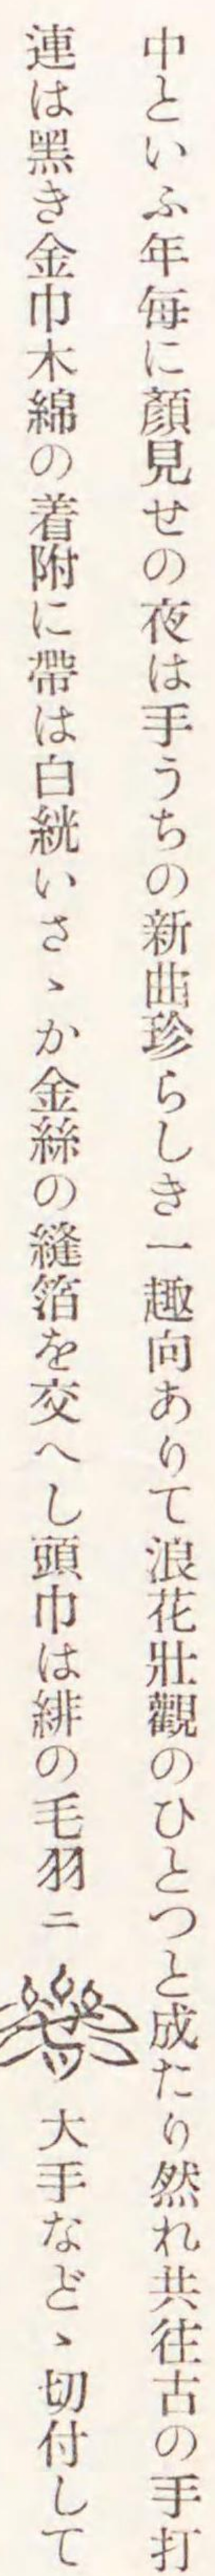 中といふ年每に顏見せの夜は手うちの新曲珍らしき一趣向ありて浪花壯觀のひとつと成たり然れ共往古の手打
連は黑き金巾木綿の着附に帶は白絖いさゝか金絲の縫箔を交へし頭巾は緋の毛羽ニ 大手などゝ切付して